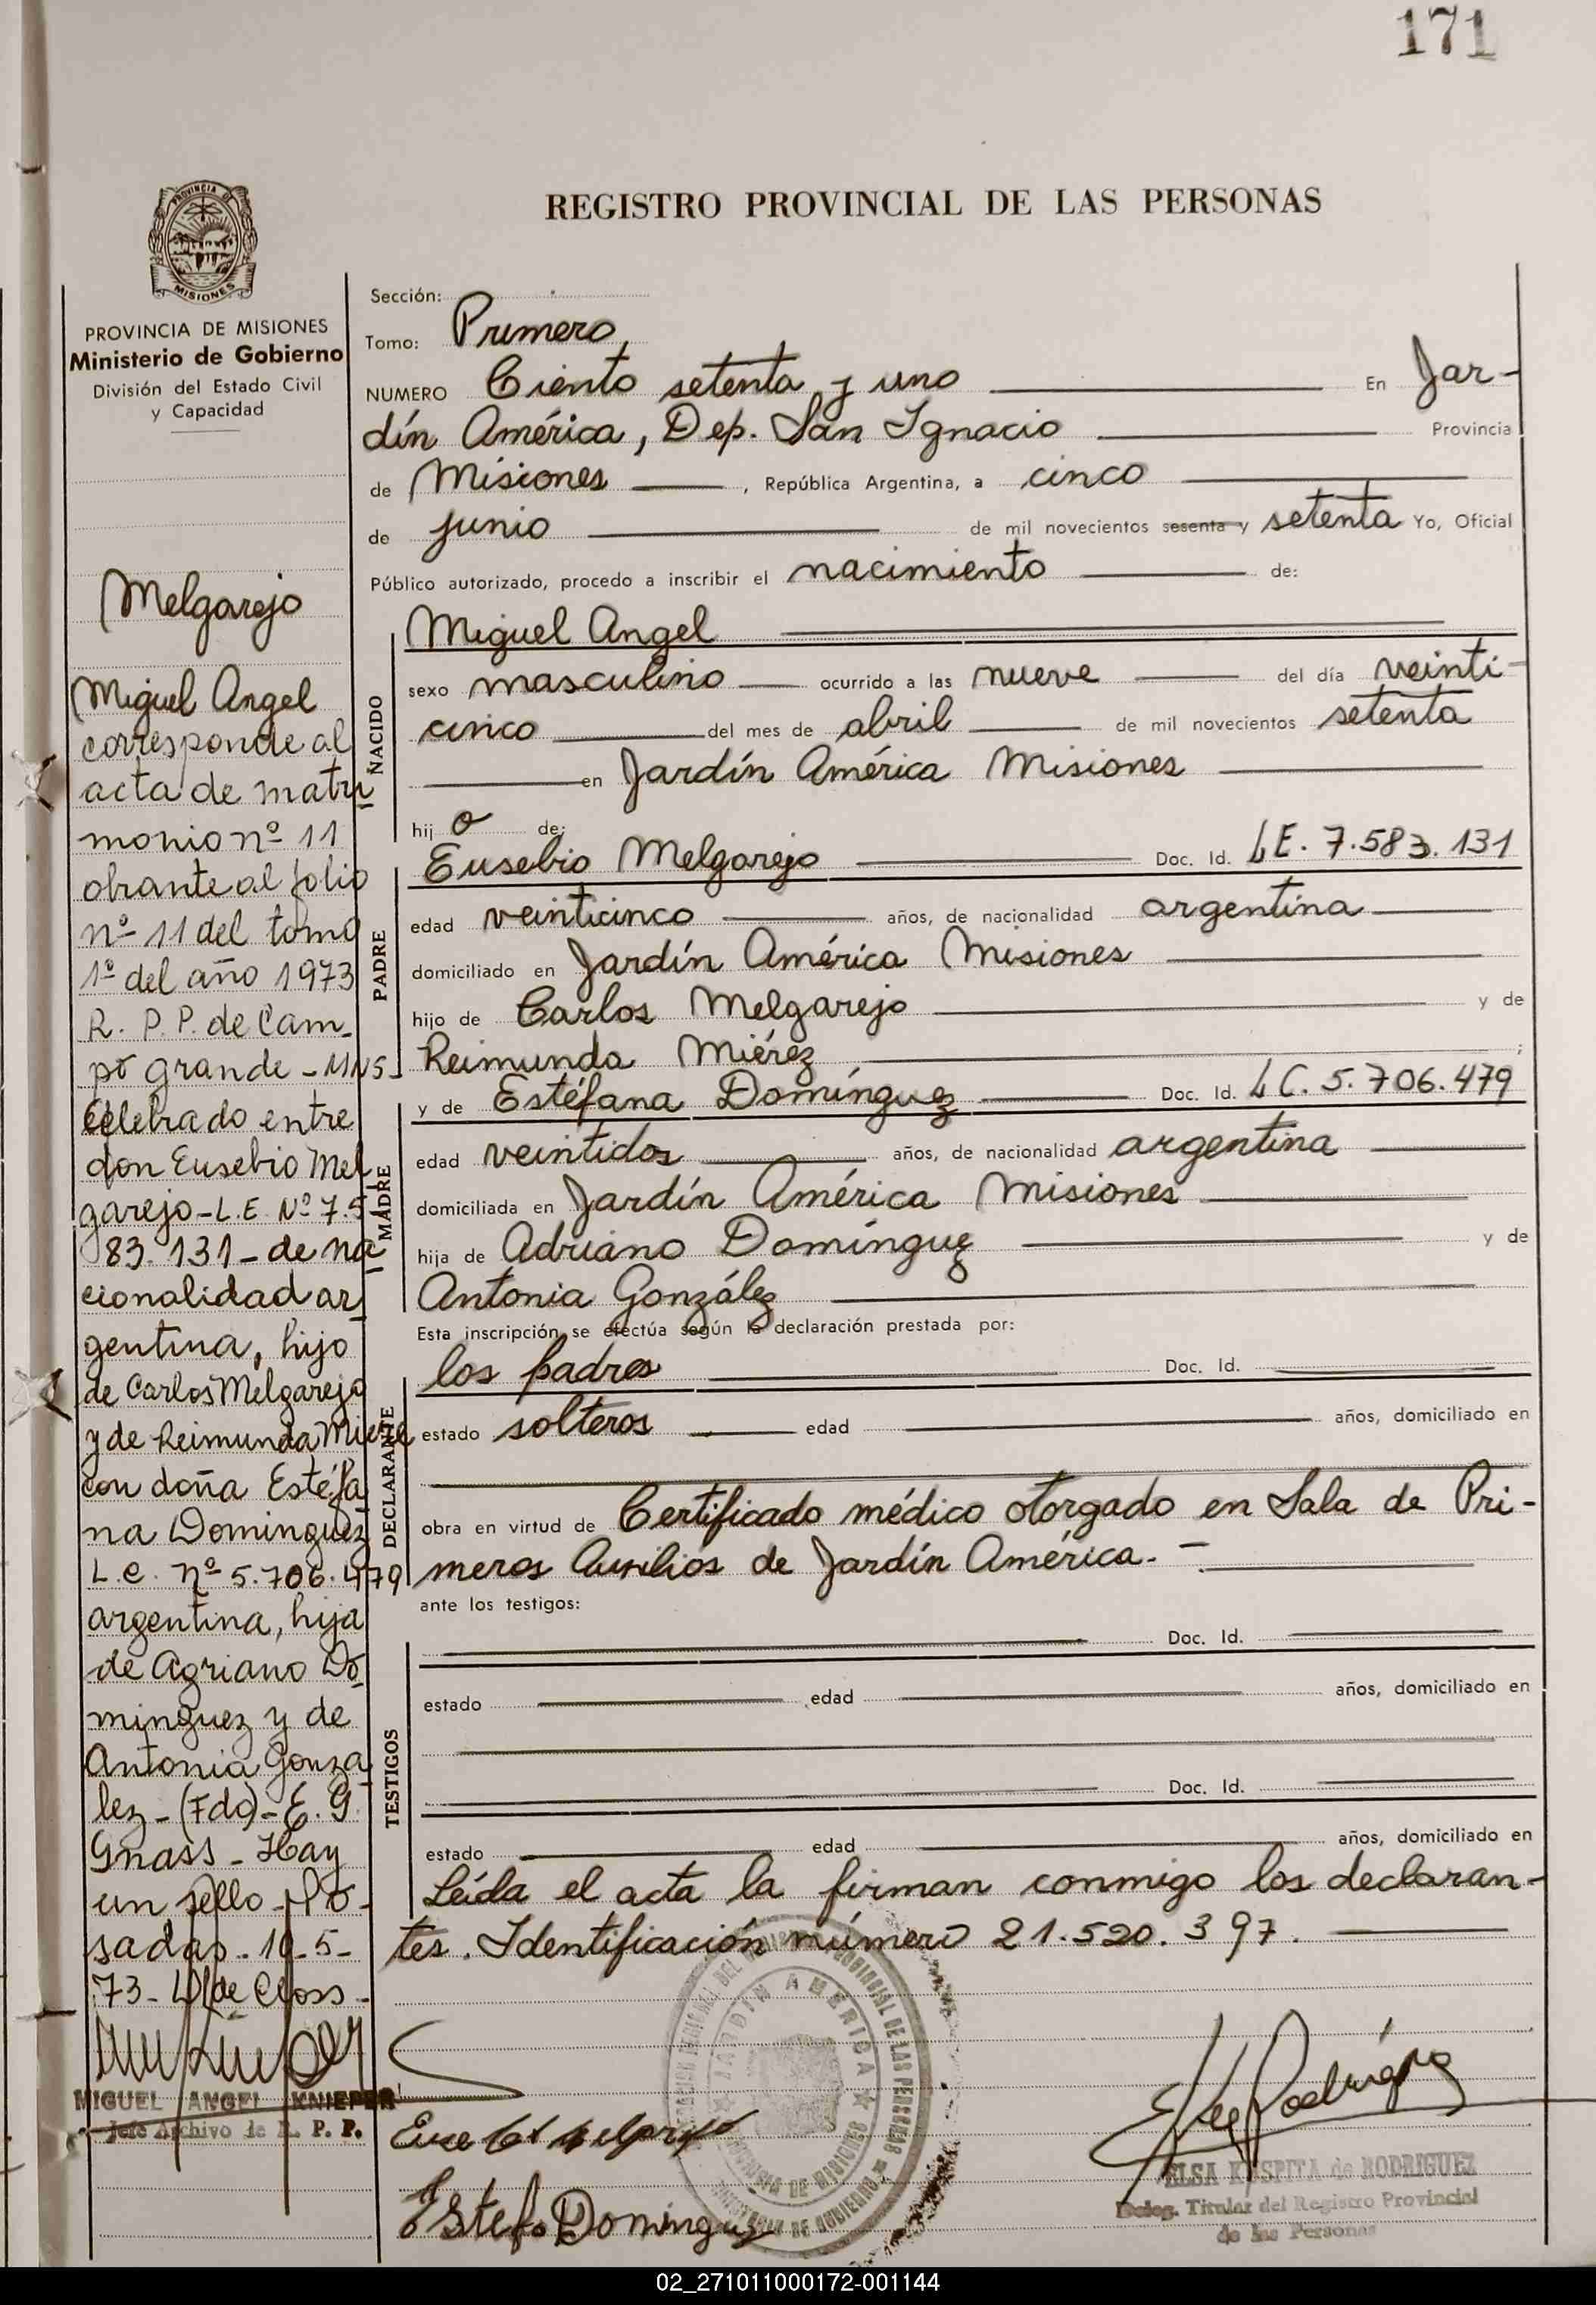 171
REGISTRO PROVINCIAL DE LAS PERSONAS
PROVINCIA DE
MISIONES
PROVINCIA DE MISIONES
Ministerio de Gobierno
División del Estado Civil
y Capacidad
Melgarejo
Miguel Angel
corresponde al
acta de matri
monio nº 11
obrante al folio
nº 11 del tomo
1º del año 1973
R. P. P. de Cam-
po grande - MNS-
celebrado entre
don Eusebio Mel
garejo - L.E. Nº 7.5
83.131 - de na
cionalidad ar
gentina, hijo
de Carlos Melgarejo
y de Reimunda Mierez
con doña Estéfa
na Dominguez
L.C. nº 5.706.479
argentina, hija
de Adriano Do
minguez y de
Antonia Gonza
lez - (Fdo) - E. G.
Gnass - Hay
un sello - Po-
sadas - 10-5-
73-
MIGUEL ANGEL KNIEPER
Jefe Archivo de R. P. P.
Sección:
Tomo: Primero
NUMERO Ciento setenta y uno En Jar-
dín América, Dep. San Ignacio Provincia
de Misiones, República Argentina, a cinco
de junio de mil novecientos sesenta y setenta Yo, Oficial
Público autorizado, procedo a inscribir el nacimiento de:
NACIDO
Miguel Angel
sexo masculino ocurrido a las nueve del día veinti-
cinco del mes de abril de mil novecientos setenta
en Jardín América Misiones
hij o de:
PADRE
Eusebio Melgarejo Doc. Id. LE. 7.583.131
edad veinticinco años, de nacionalidad argentina
domiciliado en Jardín América Misiones
hijo de Carlos Melgarejo y de
Reimunda Miérez ;
MADRE
y de Estéfana Domínguez Doc. Id. LC. 5.706.479
edad veintidos años, de nacionalidad argentina
domiciliada en Jardín América Misiones
hija de Adriano Domínguez y de
Antonia González
Esta inscripción se efectúa según la declaración prestada por:
DECLARANTE
los padres Doc. Id.
estado solteros edad años, domiciliado en
obra en virtud de Certificado médico otorgado en Sala de Pri-
meros Auxilios de Jardín América. -
ante los testigos:
TESTIGOS
Doc. Id.
estado edad años, domiciliado en
Doc. Id.
estado edad años, domiciliado en
Leída el acta la firman conmigo los declaran-
tes. Identificación número 21.520.397.
JARDIN AMERICA
Estefa Dominguez
ELSA KASPITA de RODRIGUEZ
Deleg. Titular del Registro Provincial
de las Personas
02_271011000172-001144